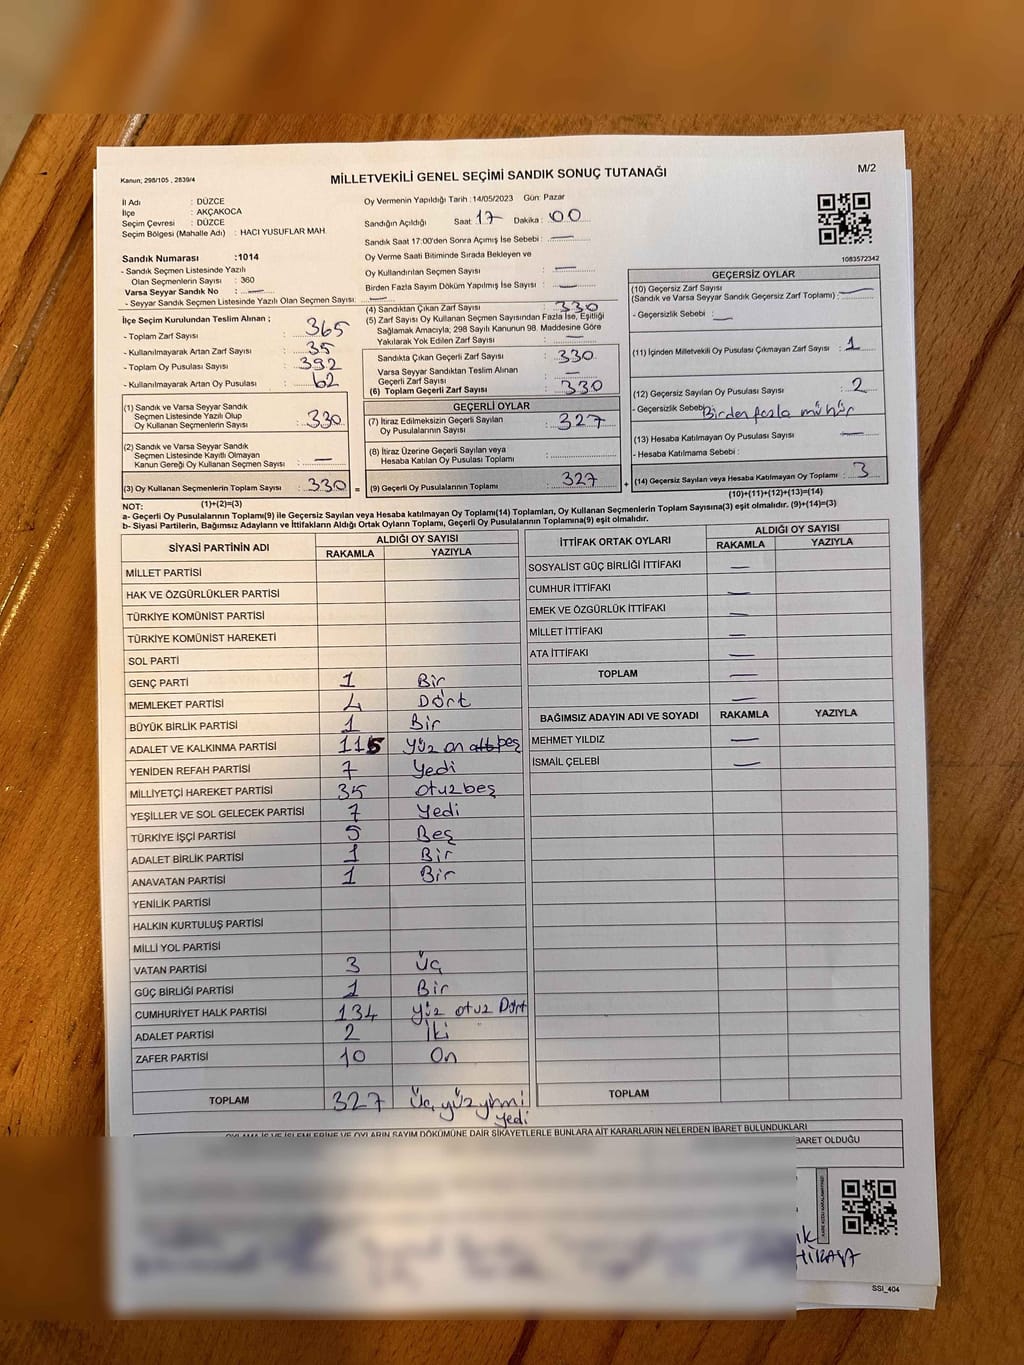 Kanun; 298/105 , 2839/4
MİLLETVEKİLİ GENEL SEÇİMİ SANDIK SONUÇ TUTANAĞI
M/2
İl Adı : DÜZCE
İlçe : AKÇAKOCA
Seçim Çevresi : DÜZCE
Seçim Bölgesi (Mahalle Adı) : HACI YUSUFLAR MAH.
Oy Vermenin Yapıldığı Tarih : 14/05/2023 Gün: Pazar
Sandığın Açıldığı Saat: 17 Dakika : 00
Sandık Saat 17:00'den Sonra Açımış İse Sebebi : —
Oy Verme Saati Bitiminde Sırada Bekleyen ve
Oy Kullandırılan Seçmen Sayısı : —
Birden Fazla Sayım Döküm Yapılmış İse Sayısı : —
1083572342
Sandık Numarası :1014
- Sandık Seçmen Listesinde Yazılı
Olan Seçmenlerin Sayısı : 360
Varsa Seyyar Sandık No : —
- Seyyar Sandık Seçmen Listesinde Yazılı Olan Seçmen Sayısı: —
İlçe Seçim Kurulundan Teslim Alınan ;
- Toplam Zarf Sayısı : 365
- Kullanılmayarak Artan Zarf Sayısı : 35
- Toplam Oy Pusulası Sayısı : 392
- Kullanılmayarak Artan Oy Pusulası : 62
(1) Sandık ve Varsa Seyyar Sandık
Seçmen Listesinde Yazılı Olup
Oy Kullanan Seçmenlerin Sayısı : 330
(2) Sandık ve Varsa Seyyar Sandık
Seçmen Listesinde Kayıtlı Olmayan
Kanun Gereği Oy Kullanan Seçmen Sayısı : —
(3) Oy Kullanan Seçmenlerin Toplam Sayısı : 330
(1)+(2)=(3)
(4) Sandıktan Çıkan Zarf Sayısı : 330
(5) Zarf Sayısı Oy Kullanan Seçmen Sayısından Fazla İse, Eşitliği
Sağlamak Amacıyla; 298 Sayılı Kanunun 98. Maddesine Göre
Yakılarak Yok Edilen Zarf Sayısı : —
Sandıkta Çıkan Geçerli Zarf Sayısı : 330
Varsa Seyyar Sandıktan Teslim Alınan
Geçerli Zarf Sayısı : —
(6) Toplam Geçerli Zarf Sayısı : 330
GEÇERLİ OYLAR
(7) İtiraz Edilmeksizin Geçerli Sayılan
Oy Pusulalarının Sayısı : 327
(8) İtiraz Üzerine Geçerli Sayılan veya
Hesaba Katılan Oy Pusulası Toplamı :
= (9) Geçerli Oy Pusulalarının Toplamı : 327
GEÇERSİZ OYLAR
(10) Geçersiz Zarf Sayısı
(Sandık ve Varsa Seyyar Sandık Geçersiz Zarf Toplamı) : —
- Geçersizlik Sebebi : —
(11) İçinden Milletvekili Oy Pusulası Çıkmayan Zarf Sayısı : 1
(12) Geçersiz Sayılan Oy Pusulası Sayısı : 2
- Geçersizlik Sebebi Birden fazla mühür
(13) Hesaba Katılmayan Oy Pusulası Sayısı : —
- Hesaba Katılmama Sebebi :
+ (14) Geçersiz Sayılan veya Hesaba Katılmayan Oy Toplamı : 3
(10)+(11)+(12)+(13)=(14)
NOT:
a- Geçerli Oy Pusulalarının Toplamı(9) ile Geçersiz Sayılan veya Hesaba katılmayan Oy Toplamı(14) Toplamları, Oy Kullanan Seçmenlerin Toplam Sayısına(3) eşit olmalıdır. (9)+(14)=(3)
b- Siyasi Partilerin, Bağımsız Adayların ve İttifakların Aldığı Ortak Oyların Toplamı, Geçerli Oy Pusulalarının Toplamına(9) eşit olmalıdır.
SİYASİ PARTİNİN ADI ALDIĞI OY SAYISI
RAKAMLA YAZIYLA
MİLLET PARTİSİ
HAK VE ÖZGÜRLÜKLER PARTİSİ
TÜRKİYE KOMÜNİST PARTİSİ
TÜRKİYE KOMÜNİST HAREKETİ
SOL PARTİ
GENÇ PARTİ 1 Bir
MEMLEKET PARTİSİ 4 Dört
BÜYÜK BİRLİK PARTİSİ 1 Bir
ADALET VE KALKINMA PARTİSİ 115 yüz on altı beş
YENİDEN REFAH PARTİSİ 7 Yedi
MİLLİYETÇİ HAREKET PARTİSİ 35 otuz beş
YEŞİLLER VE SOL GELECEK PARTİSİ 7 Yedi
TÜRKİYE İŞÇİ PARTİSİ 5 Beş
ADALET BİRLİK PARTİSİ 1 Bir
ANAVATAN PARTİSİ 1 Bir
YENİLİK PARTİSİ
HALKIN KURTULUŞ PARTİSİ
MİLLİ YOL PARTİSİ
VATAN PARTİSİ 3 Üç
GÜÇ BİRLİĞİ PARTİSİ 1 Bir
CUMHURİYET HALK PARTİSİ 134 yüz otuz Dört
ADALET PARTİSİ 2 İki
ZAFER PARTİSİ 10 On
TOPLAM 327 Üç yüz yirmi
yedi
İTTİFAK ORTAK OYLARI ALDIĞI OY SAYISI
RAKAMLA YAZIYLA
SOSYALİST GÜÇ BİRLİĞİ İTTİFAKI —
CUMHUR İTTİFAKI —
EMEK VE ÖZGÜRLÜK İTTİFAKI —
MİLLET İTTİFAKI —
ATA İTTİFAKI —
TOPLAM —
—
BAĞIMSIZ ADAYIN ADI VE SOYADI RAKAMLA YAZIYLA
MEHMET YILDIZ —
İSMAİL ÇELEBİ —
TOPLAM
OYLAMA İŞ VE İŞLEMLERİNE VE OYLARIN SAYIM DÖKÜMÜNE DAİR ŞİKAYETLERLE BUNLARA AİT KARARLARIN NELERDEN İBARET BULUNDUKLARI
BARET OLDUĞU
SSI_404